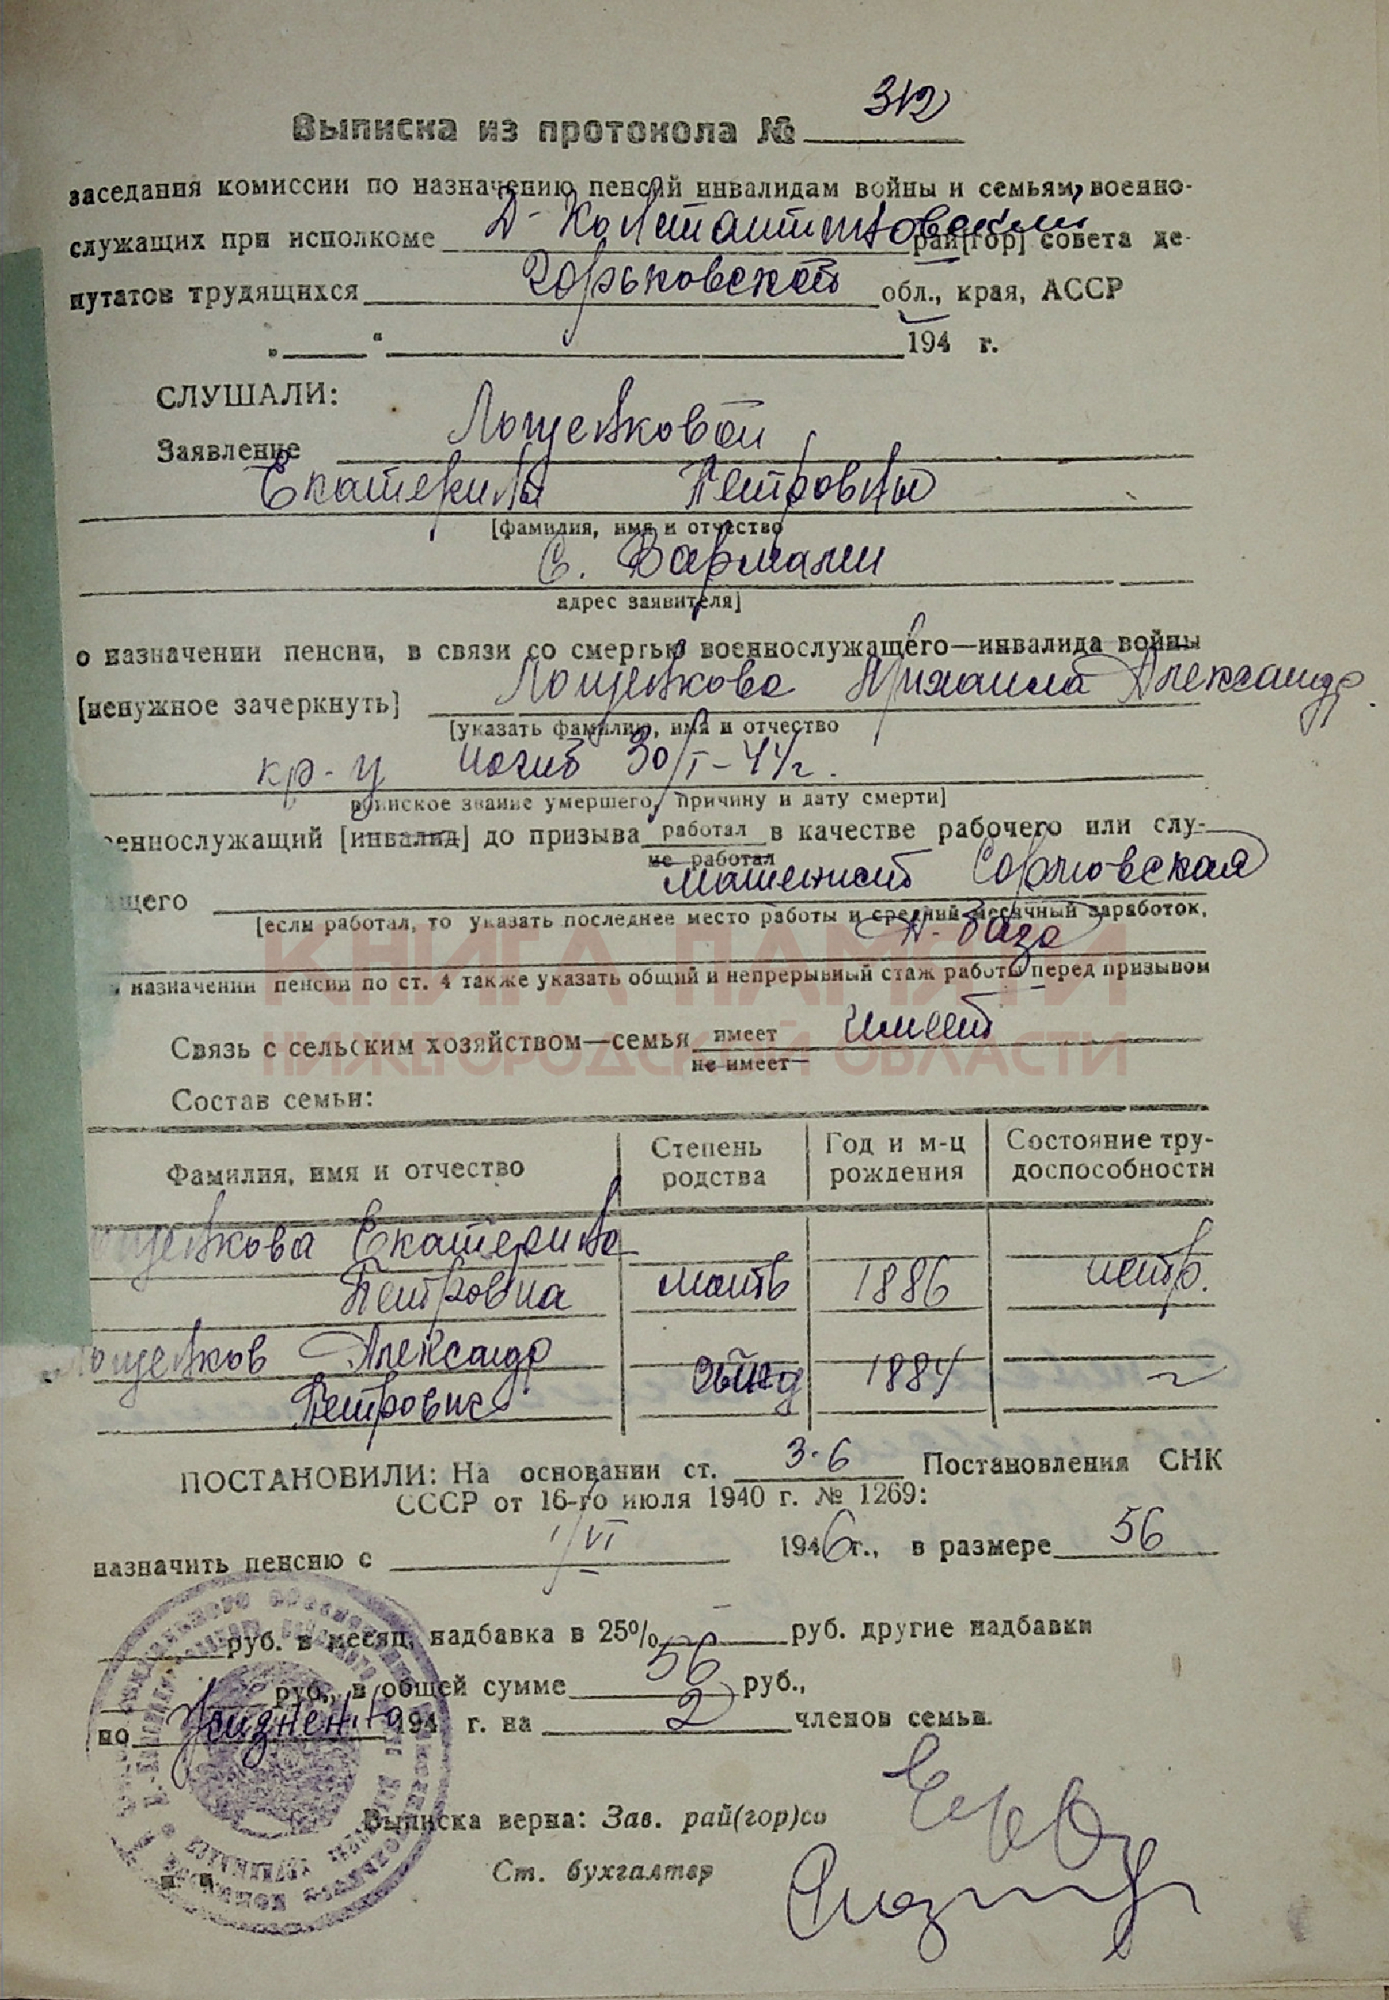 Выписка из протокола № 312
заседания комиссии по назначению пенсий инвалидам войны и семьям военно-
служащих при исполкоме Д-Константиновский рай[гор] совета де-
путатов трудящихся Горьковской обл., края, АССР
„ “ 194 г.
СЛУШАЛИ:
Заявление Лощенковой
Екатерины Петровны
[фамилия, имя и отчество
с. Вармали
адрес заявителя]
о назначении пенсии, в связи со смертью военнослужащего—инвалида войны
[ненужное зачеркнуть] Лощенкова Михаила Александр
[указать фамилию, имя и отчество
кр-ц погиб 30/I-44г.
воинское звание умершего, причину и дату смерти]
еннослужащий [инвалид] до призыва работал в качестве рабочего или слу-
не работал
ащего машинист Сормовская
[если работал, то указать последнее место работы и средний месячный заработок,
Н-База
назначении пенсии по ст. 4 также указать общий и непрерывный стаж работы перед призывом
КНИГА ПАМЯТИ
НИЖЕГОРОДСКОЙ ОБЛАСТИ
Связь с сельским хозяйством—семья имеет имеет
не имеет
Состав семьи:
Фамилия, имя и отчество Степень родства Год и м-ц рождения Состояние тру-доспособности
ощенкова Екатерина
Петровна мать 1886 нетр.
Лощенков Александр
Петрович отец 1884
ПОСТАНОВИЛИ: На основании ст. 3-6 Постановления СНК
СССР от 16-го июля 1940 г. № 1269:
назначить пенсию с 1/VI 1946 г., в размере 56
руб. в месяц, надбавка в 25% — руб. другие надбавки
руб., в общей сумме 56 руб.,
по пожизненно 194 г. на 2 членов семьи.
Выписка верна: Зав. рай(гор)со
Ст. бухгалтер